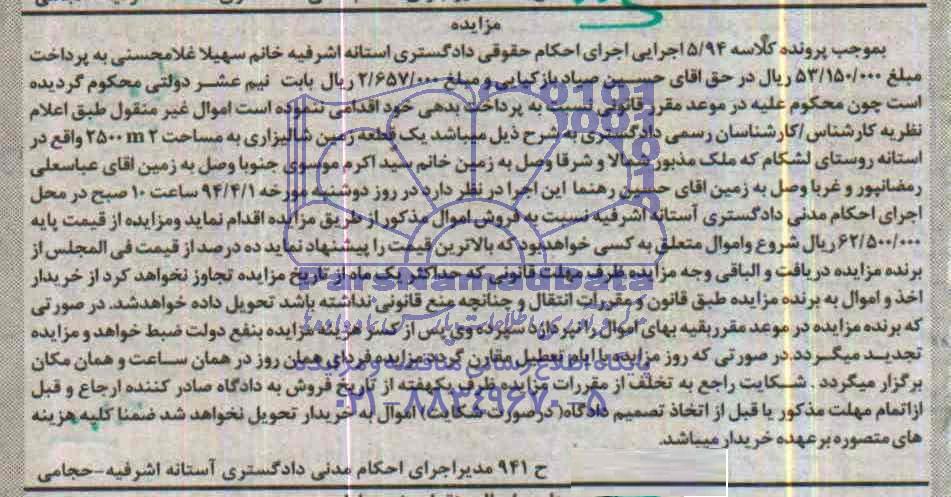 مزایده
بموجب پرونده کلاسه ۵/۹۴ اجرایی اجرای احکام حقوقی دادگستری استانه اشرفیه خانم سهیلا غلامحسنی به پرداخت
مبلغ ۵۳/۱۵۰/۰۰۰ ریال در حق اقای حسین صیاد بازکیایی و مبلغ ۲/۶۵۷/۰۰۰ ریال بابت نیم عشر دولتی محکوم گردیده
است چون محکوم علیه در موعد مقرر قانونی نسبت به پرداخت بدهی خود اقدامی ننموده است اموال غیر منقول طبق اعلام
نظریه کارشناس/کارشناسان رسمی دادگستری به شرح ذیل میباشد یک قطعه زمین شالیزاری به مساحت ۲۵۰۰ m ۲ واقع در
استانه روستای لشکام که ملک مذبور شمالا و شرقا وصل به زمین خانم سید اکرم موسوی جنوبا وصل به زمین اقای عباسعلی
رمضانپور و غربا وصل به زمین اقای حسین رهنما این اجرا در نظر دارد در روز دوشنبه مورخه ۹۴/۴/۱ ساعت ۱۰ صبح در محل
اجرای احکام مدنی دادگستری آستانه اشرفیه نسبت به فروش اموال مذکور از طریق مزایده اقدام نماید ومزایده از قیمت پایه
۶۲/۵۰۰/۰۰۰ ریال شروع واموال متعلق به کسی خواهدبود که بالاترین قیمت را پیشنهاد نماید ده درصد از قیمت فی المجلس از
برنده مزایده دریافت و الباقی وجه مزایده ظرف مهلت قانونی که حداکثر یک ماه از تاریخ مزایده تجاوز نخواهد کرد از خریدار
اخذ و اموال به برنده مزایده طبق قانون و مقررات انتقال و چنانچه منع قانونی نداشته باشد تحویل داده خواهدشد. در صورتی
که برنده مزایده در موعد مقرر بقیه بهای اموال را نپردازد سپرده وی پس از کسر هزینه مزایده بنفع دولت ضبط خواهد و مزایده
تجدید میگردد.در صورتی که روز مزایده با ایام تعطیل مقارن گردد مزایده فردای همان روز در همان ساعت و همان مکان
برگزار میگردد . شکایت راجع به تخلف از مقررات مزایده ظرف یکهفته از تاریخ فروش به دادگاه صادر کننده ارجاع و قبل
ازاتمام مهلت مذکور یا قبل از اتخاذ تصمیم دادگاه(درصورت شکایت) اموال به خریدار تحویل نخواهد شد ضمنا کلیه هزینه
های متصوره بر عهده خریدار میباشد.
ح ۹۴۱ مدیراجرای احکام مدنی دادگستری آستانه اشرفیه-حجامی
ParsNamadData
پایگاه اطلاع رسانی مناقصه و مزایده
۰۲۱-۸۸۳۴۹۶۷۰-۵